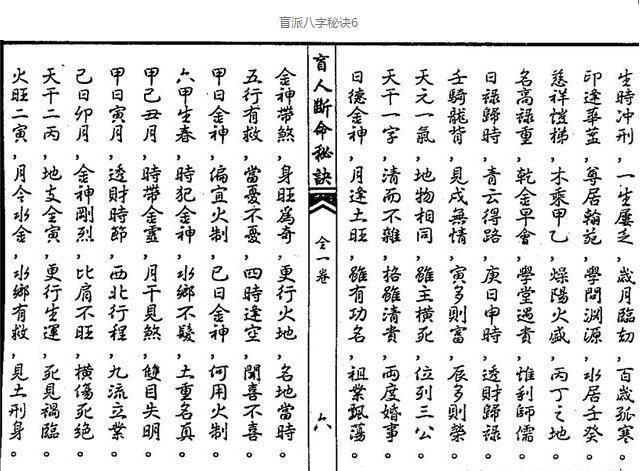 盲派八字秘诀6
生時冲刑，一生屢乏，歲月臨劫，百歲孤寒。
印逢華蓋，尊居翰苑，學問淵源，水居壬癸。
慈祥愷梯，木乘甲乙，燥陽火盛，丙丁之地
名高祿重，乾金早會，學堂遇貴，惟利師儒。
日祿歸時，青云得路，庚日申時，透財歸祿。
壬騎龍背，見戌無情，寅多則富，辰多則榮。
天元一氣，地物相同，雖主橫死，位列三公。
天干一字，清而不雜，格雖清貴，兩度婚事。
日德金神，月逢土旺，雖有功名，祖業飄蕩。
盲人斷命秘訣
全一卷
六
金神帶煞，身旺爲奇，更行火地，名地當時。
五行有救，當憂不憂，四時逢空，聞喜不喜。
甲日金神，偏宜火制，巳日金神，何用火制。
六甲生春，時犯金神，水鄉不發，土重名真。
甲己丑月，時帶金靈，月干見煞，雙目失明。
甲日寅月，透財時節，西北行程，九流立業。
己日卯月，金神剛烈，比肩不旺，橫傷死絕。
天干二丙，地支全寅，更行生運，死見禍臨。
火旺二寅，月令水金，水鄉有救，見土刑身。